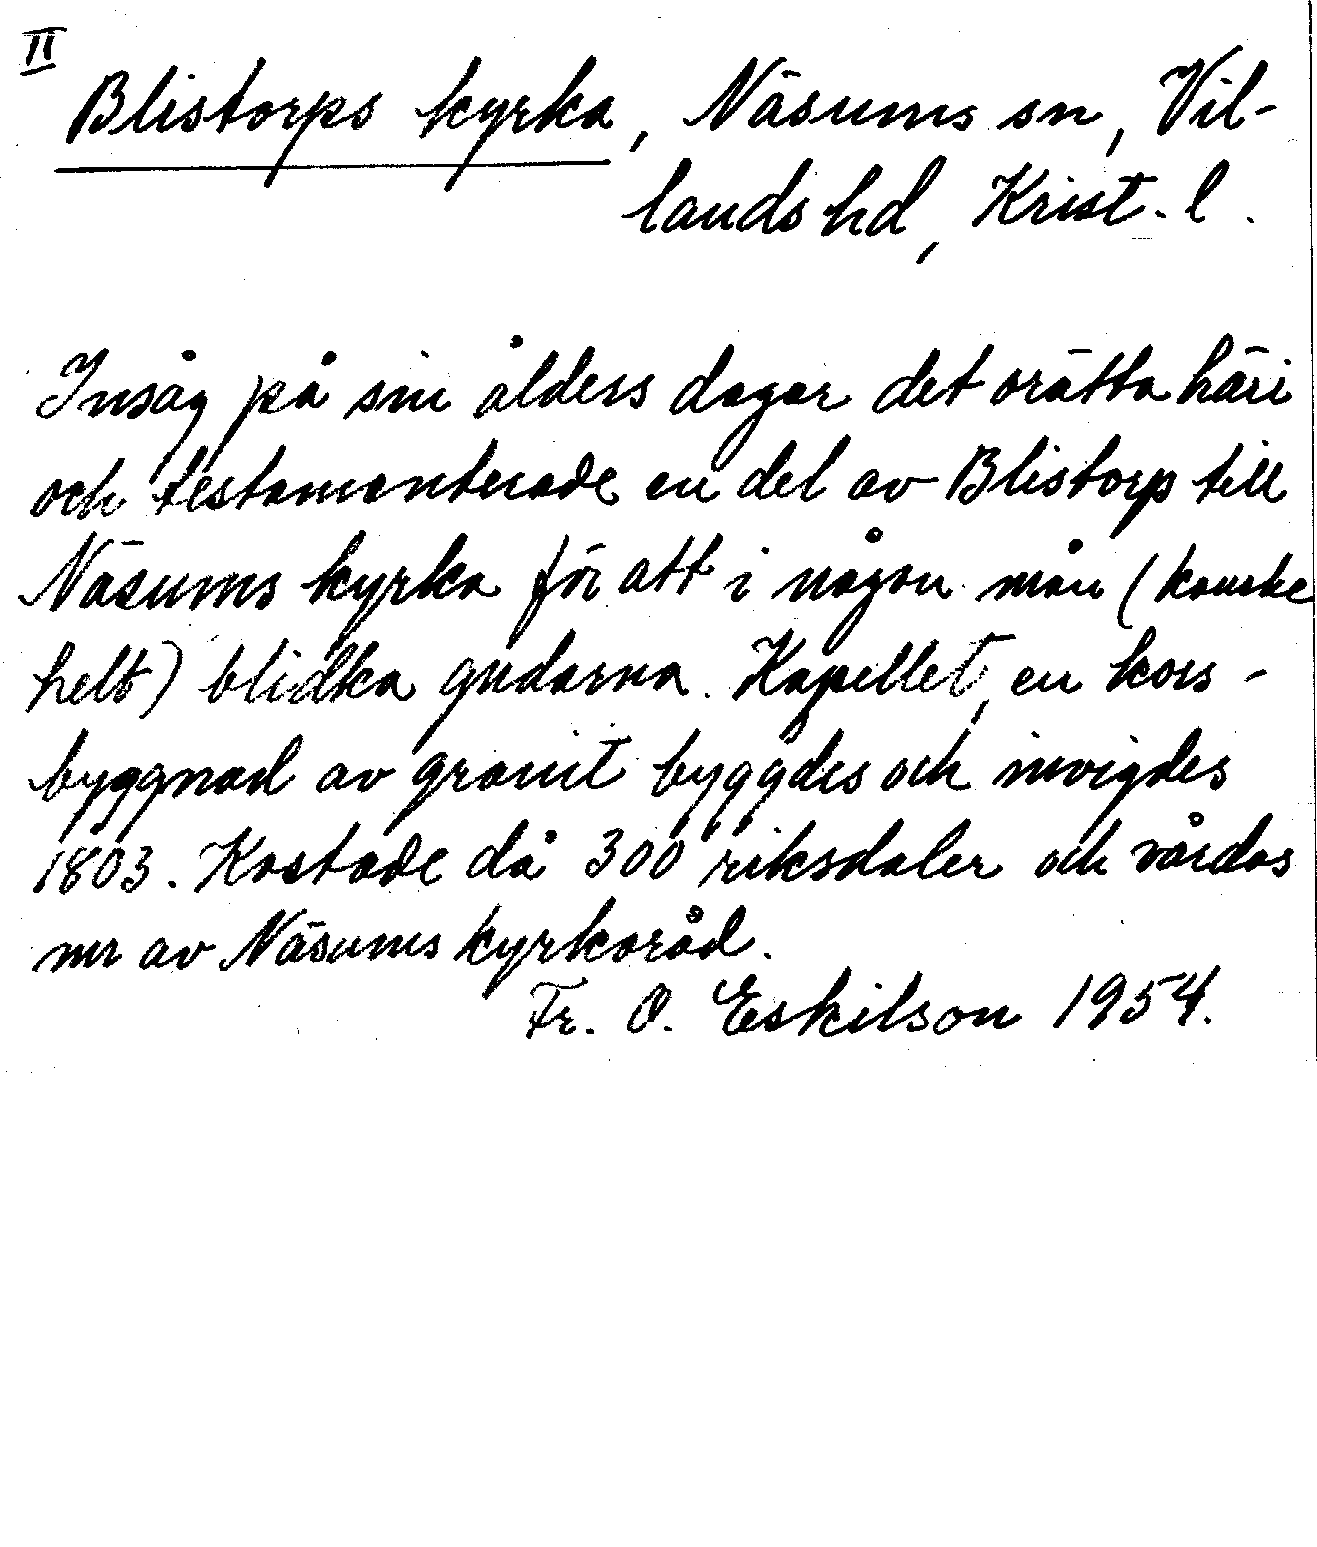 II
Blistorps kyrka, Näsums sn, Vil-
lands hd, Krist. l.
Insåg på sin ålders dagar det orätta häri
och testamenterade en del av Blistorp till
Näsums kyrka för att i någon mån (kanske
helt) blidka gudarna. Kapellet, en kors-
byggnad av granit byggdes och invigdes
1803. Kostade då 300 riksdaler och vårdas
nu av Näsums kyrkoråd.
Fr. O. Eskilson 1954.